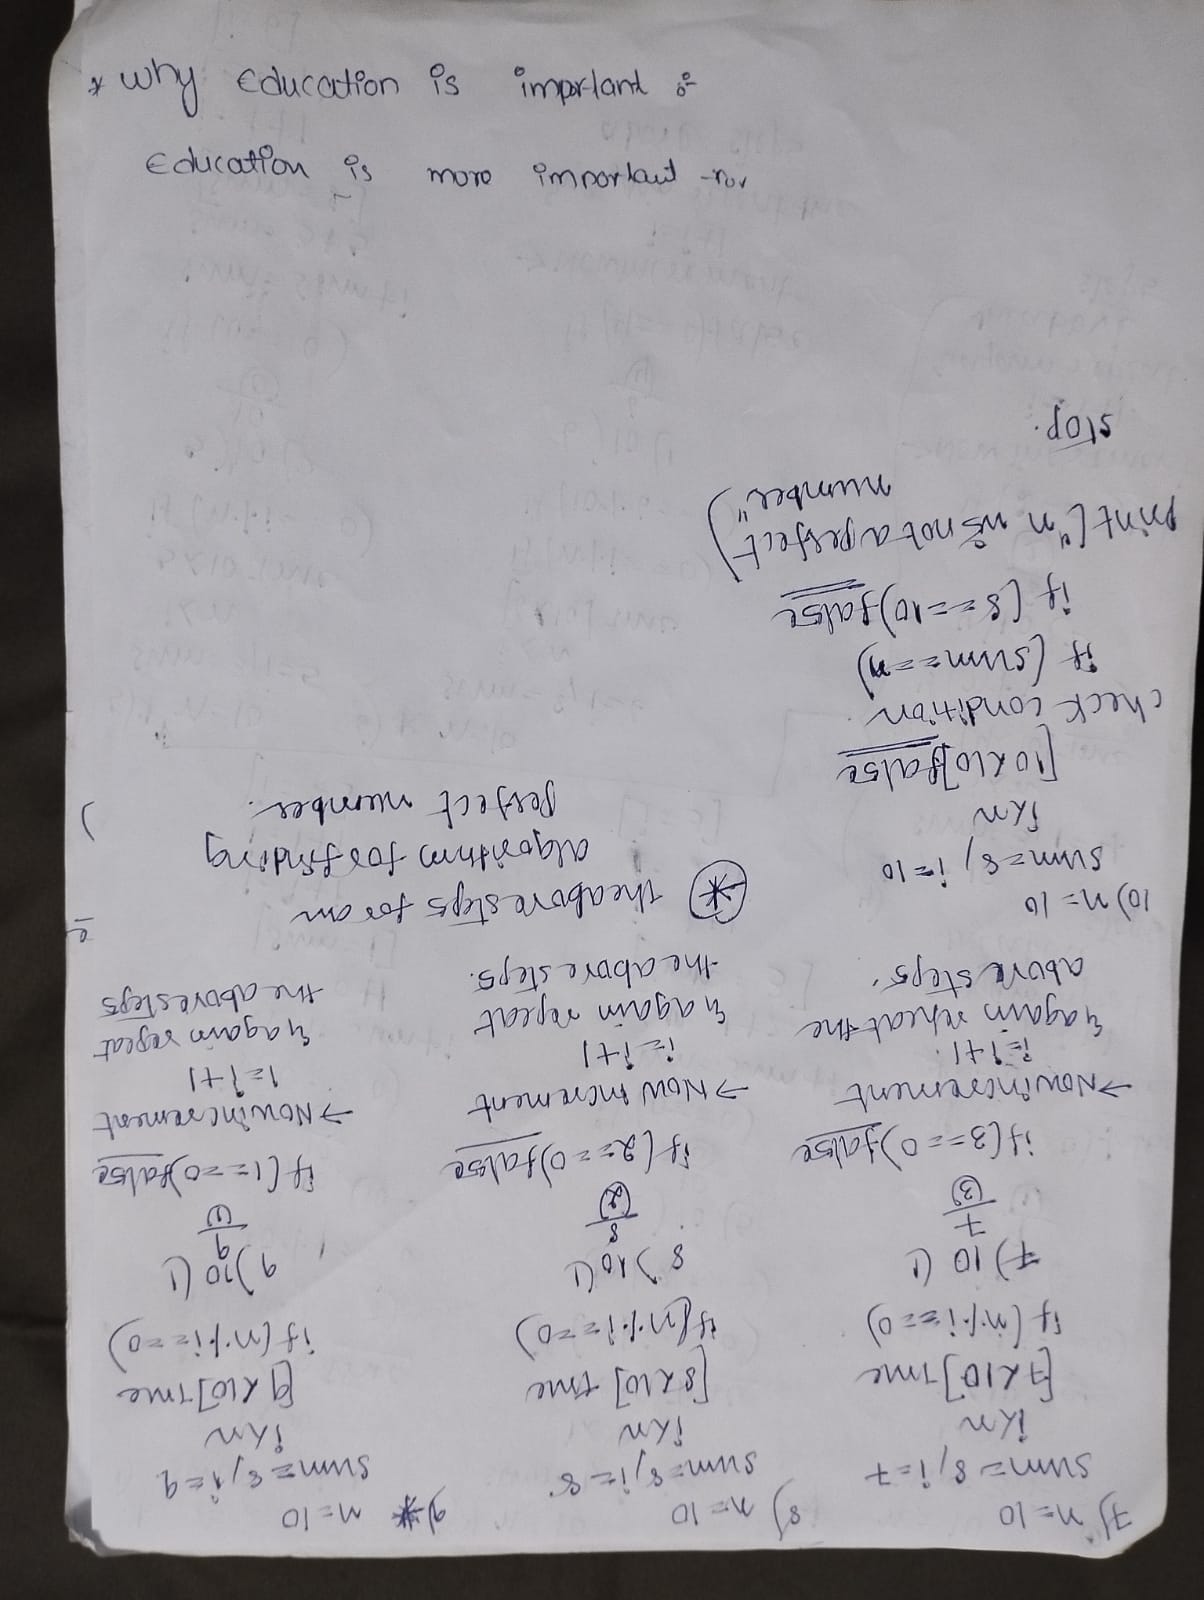 7) n=10
sum=8, i=7
i<n
[7<10] True
if (n%i==0)
7) 10 (1
7
(3)
if(3==0) false
→ Now increment
i=i+1.
& again repeat the
above steps.
8) n=10
sum=8, i=8
i<n
[8<10] true
if(n%i==0)
8) 10 (1
8
(2)
if(2==0) false
→ Now increment
i=i+1
& again repeat
the above steps.
9) * n=10
sum=8, i=9
i<n
[9<10] True
if (n%i==0)
9) 10 (1
9
(1)
if (1==0) false
→ Now increment
i=i+1
& again repeat
the above steps
10) n=10
sum=8, i=10
i<n
[10<10] false
check condition
if (sum==n)
if (8==10) false
print("n is not a perfect
number")
stop.
* The above steps for an
algorithm for finding
perfect number.
e
)
* why education is important :-
education is more important